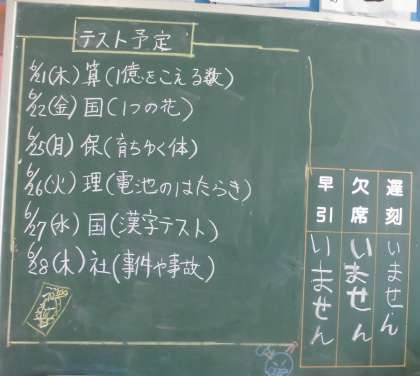 テスト予定
6/21(木) 算(1億をこえる数)
6/22(金) 国(1つの花)
6/25(月) 保(育ちゆく体)
6/26(火) 理(電池のはたらき)
6/27(水) 国(漢字テスト)
6/28(木) 社(事件や事故)
遅刻 いません
欠席 いません
早引 いません